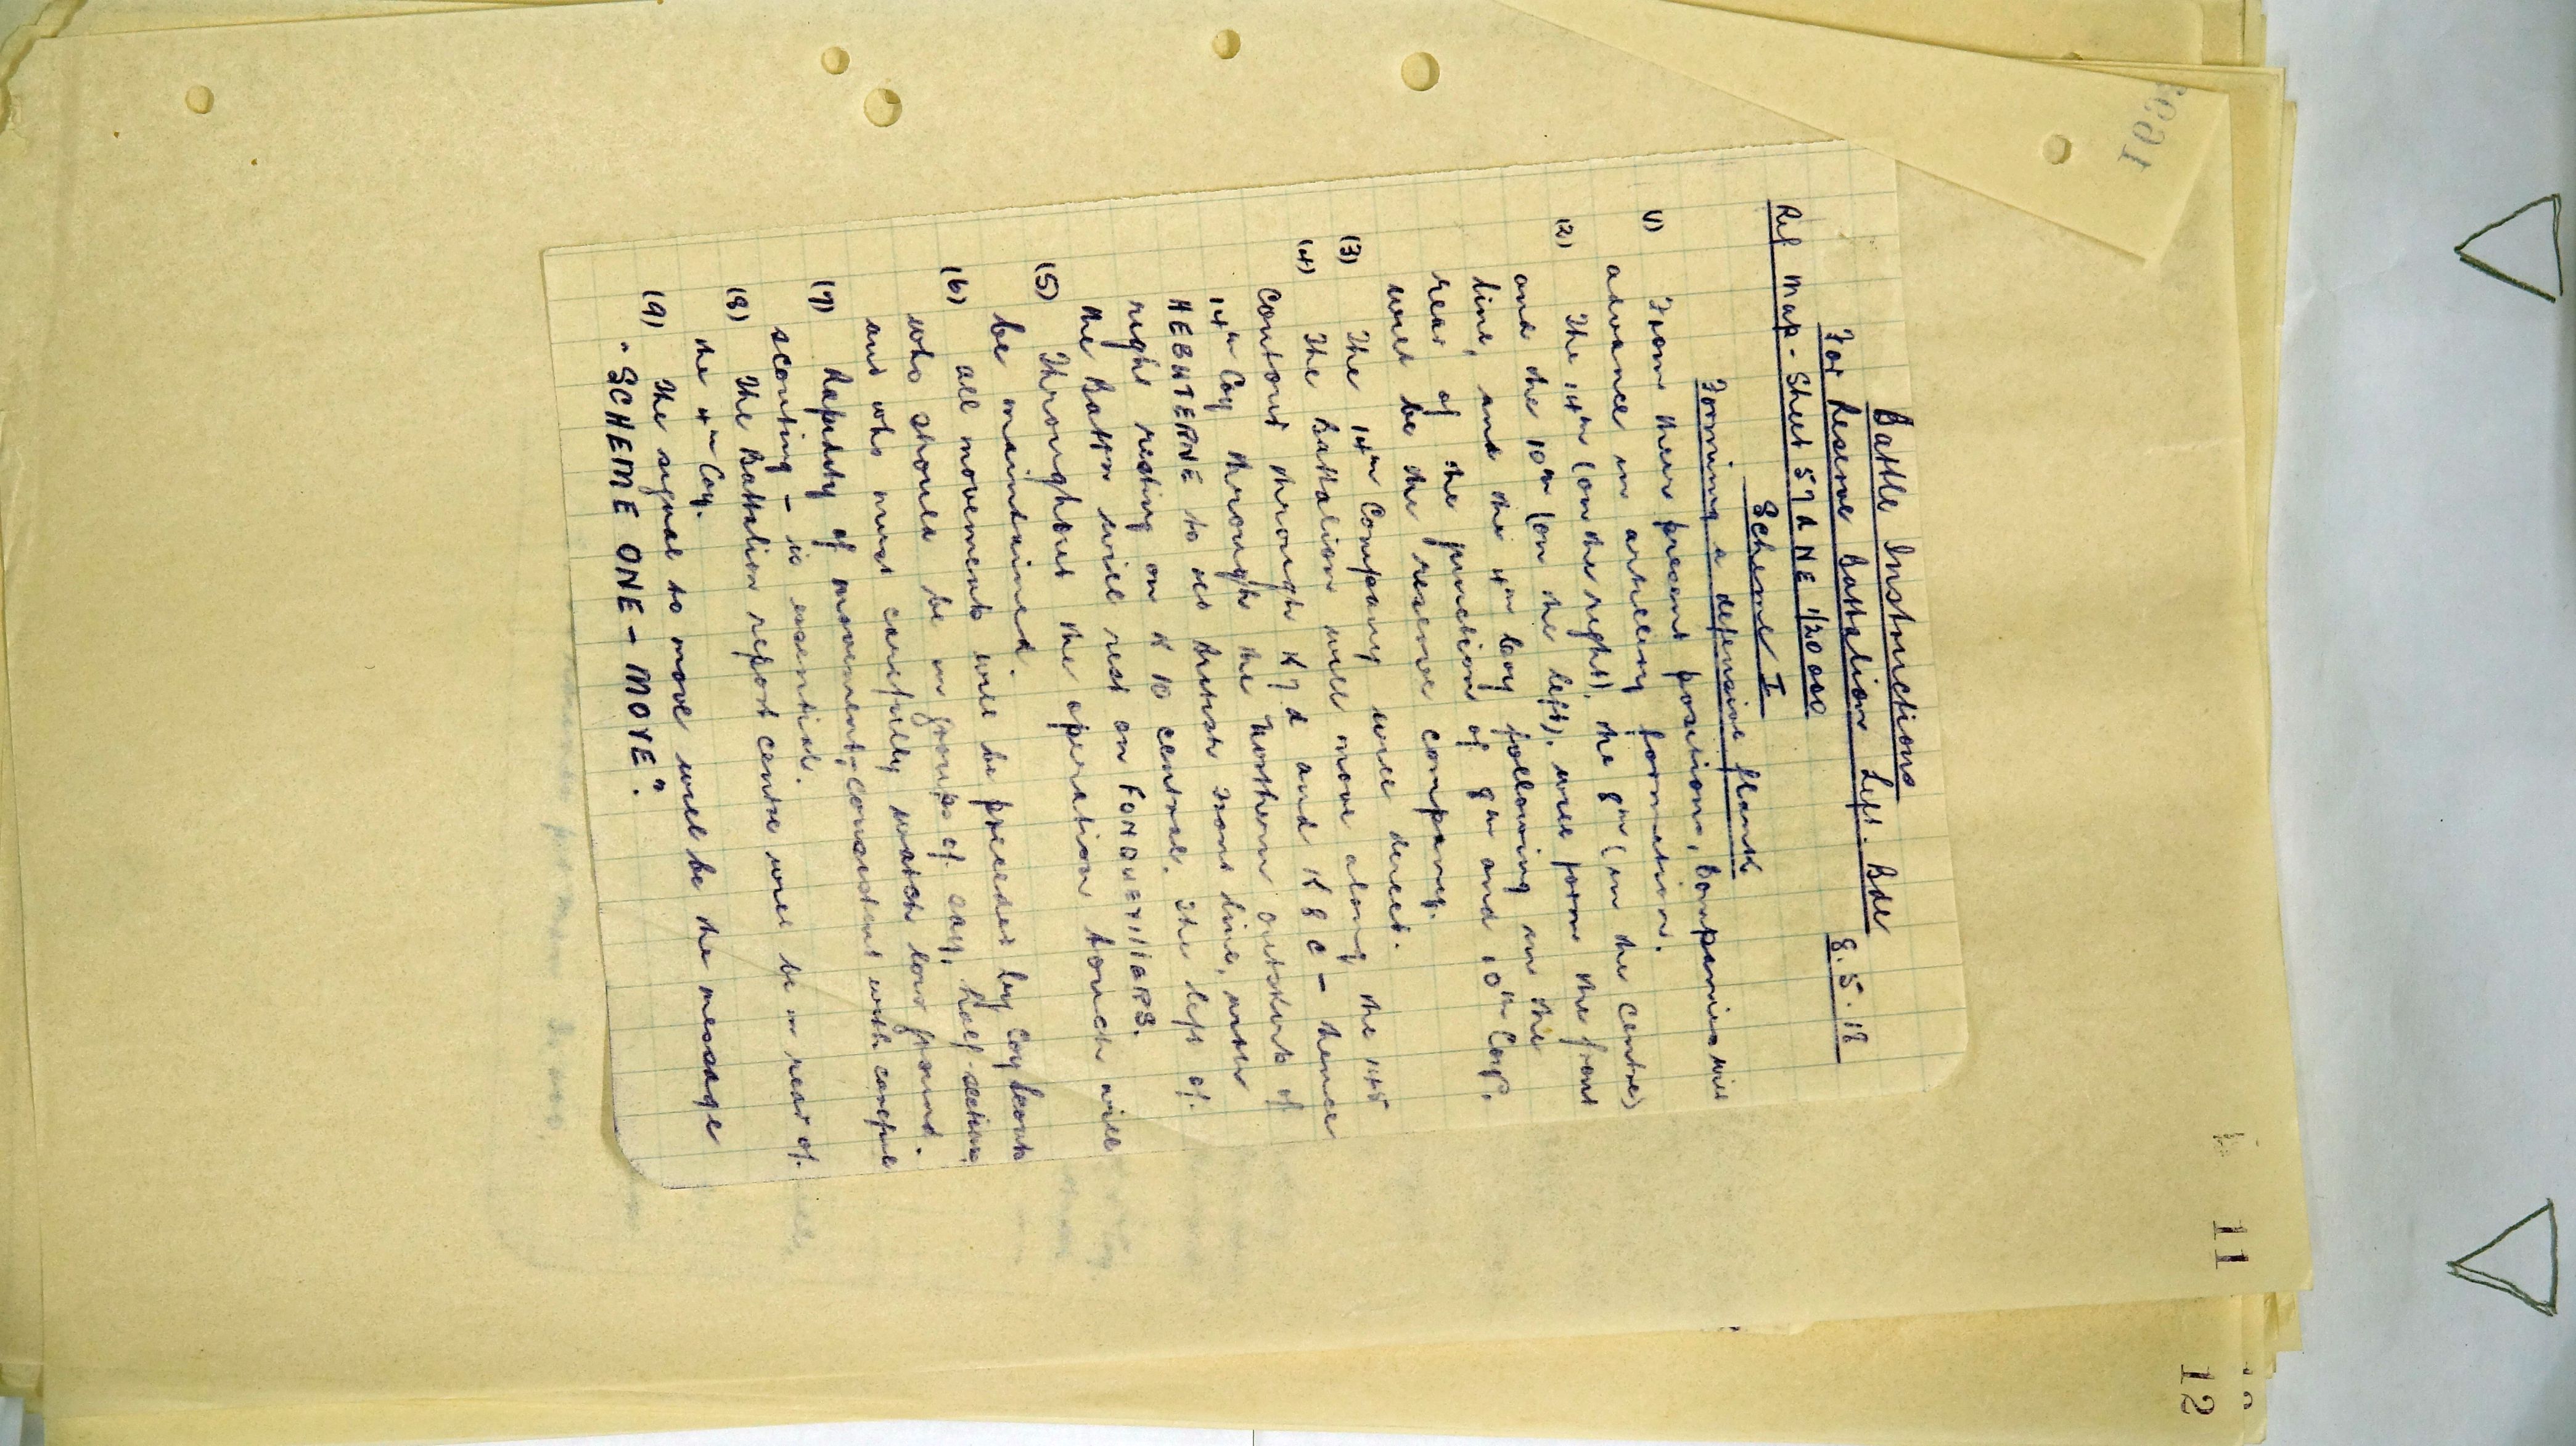 Battle Instructions
For Reserve Battalion Left. Bde
8.5.18
Ref Map - Sheet 57 D NE 1/20 000
Scheme I
Forming a defensive flank
(1) From their present positions, Companies will
advance in artillery formation.
(2) The 14th (on the right), the 8th (in the centre)
and the 10th (on the left), will form the front
line, and the 4th Coy following in the
rear of the junction of 8th and 10th Coys.
will be the reserve company.
(3) The 14th Company will direct.
(4) The Battalion will move along the 145
contour through K 7 d and K 8 c - thence
14th Coy through the Northern outskirts of
HEBUTERNE to old British front line, with
right resting on K 10 central. The left of
the Battn will rest on FONQUEVILLARS.
(5) Throughout the operation touch will
be maintained.
(6) All movements will be preceded by Coy Scouts
who should be in groups of say, half-sections
and who must carefully watch low ground.
(7) Rapidity of movement, consistent with careful
scouting - is essential.
(8) The Battalion report centre will be in rear of
the 4th Coy.
(9) The signal to move will be the message
"SCHEME ONE - MOVE".
1691
11
12